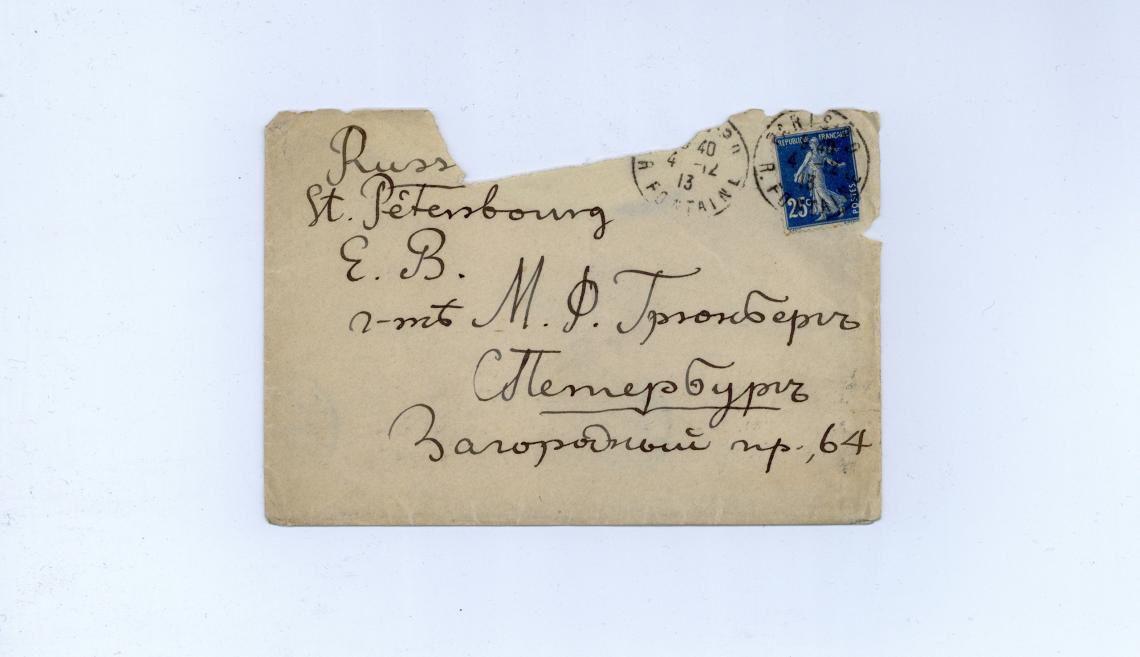 Russ
St. Pétersbourg
Е. В.
г-тѣ М. Ф. Грюнбергъ
СПетербургъ
Загородный пр., 64
40
4 -12
13
R. FONTAINE
PARIS
REPUBLIQUE FRANÇAISE
4 -12
13
25c
POSTES